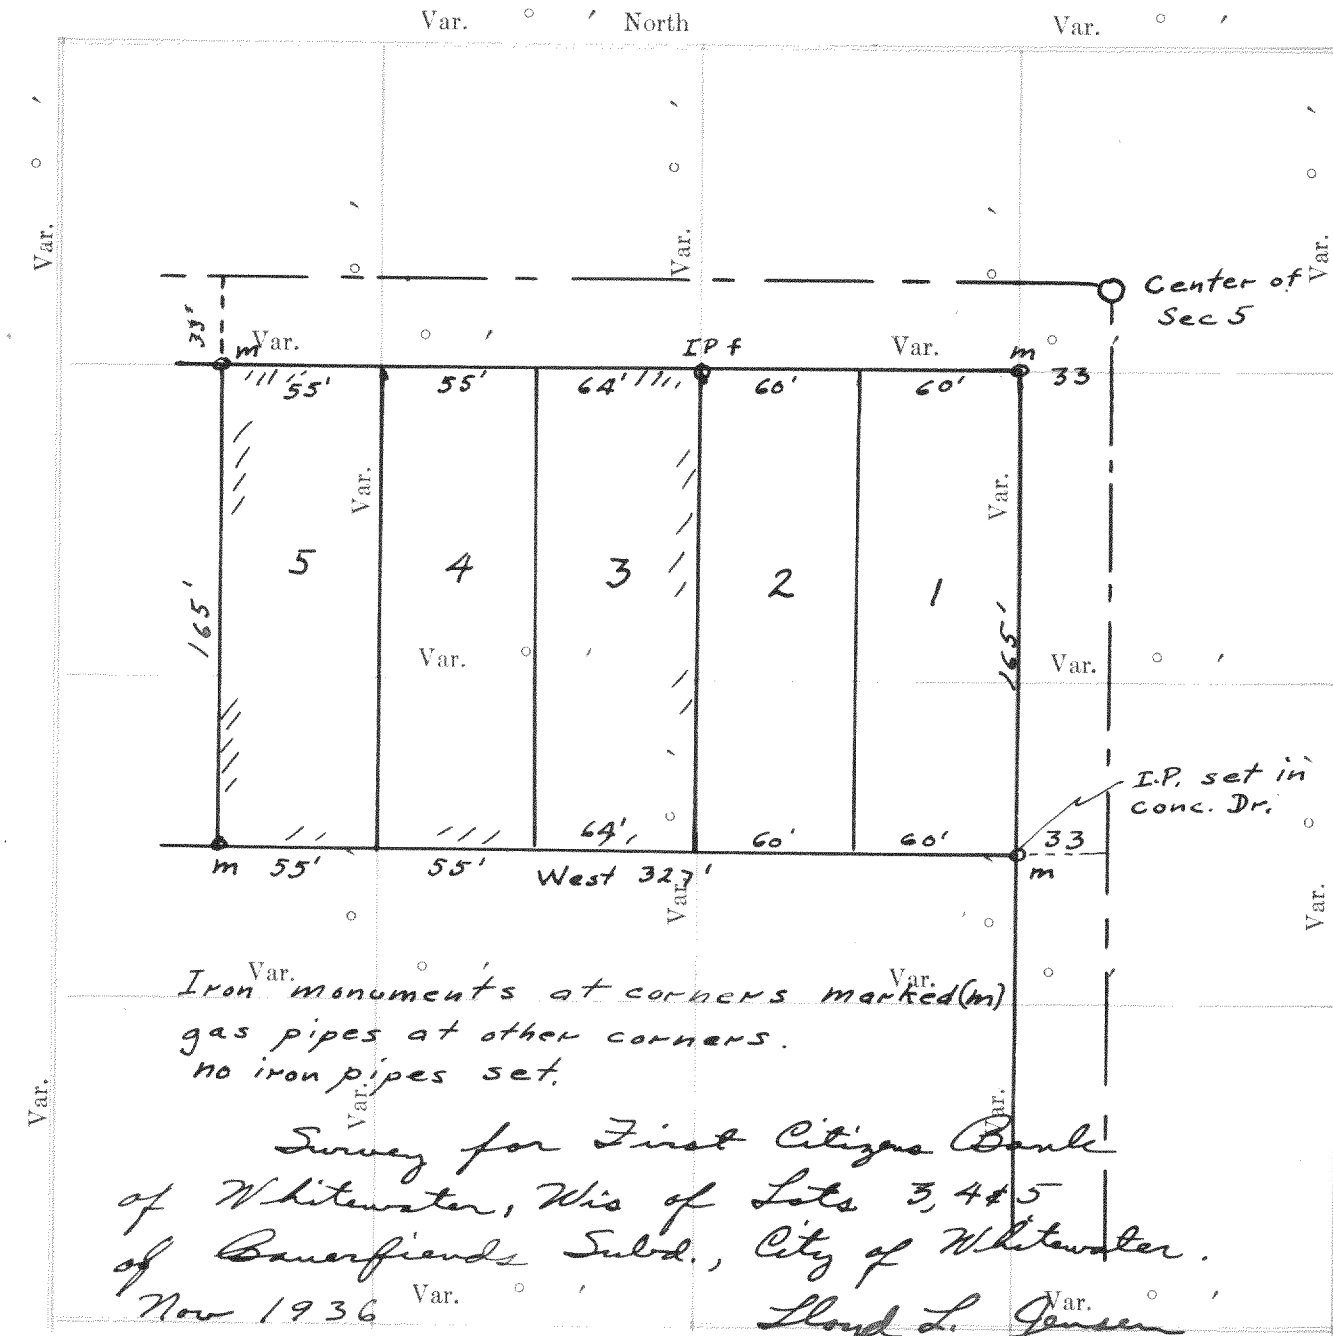 Var. ° ' North Var. ° '
Var.
Var.
Var.
Center of
Sec 5
33'
m
Var.
IP f
Var.
m
33
55' 55' 64' 60' 60'
Var.
Var.
5 4 3 2 1
165'
165'
Var.
Var.
I.P. set in
conc. Dr.
64' 60' 60' 33
m 55' 55' West 327' m
Var.
Var.
Var.
Var.
Iron monuments at corners marked (m)
gas pipes at other corners.
no iron pipes set.
Var.
Var.
Var.
Survey for First Citizens Bank
of Whitewater, Wis of Lots 3, 4 & 5
of Bauerfiends Subd., City of Whitewater.
Nov 1936 Var. ° ' Lloyd L. Jensen Var. ° '